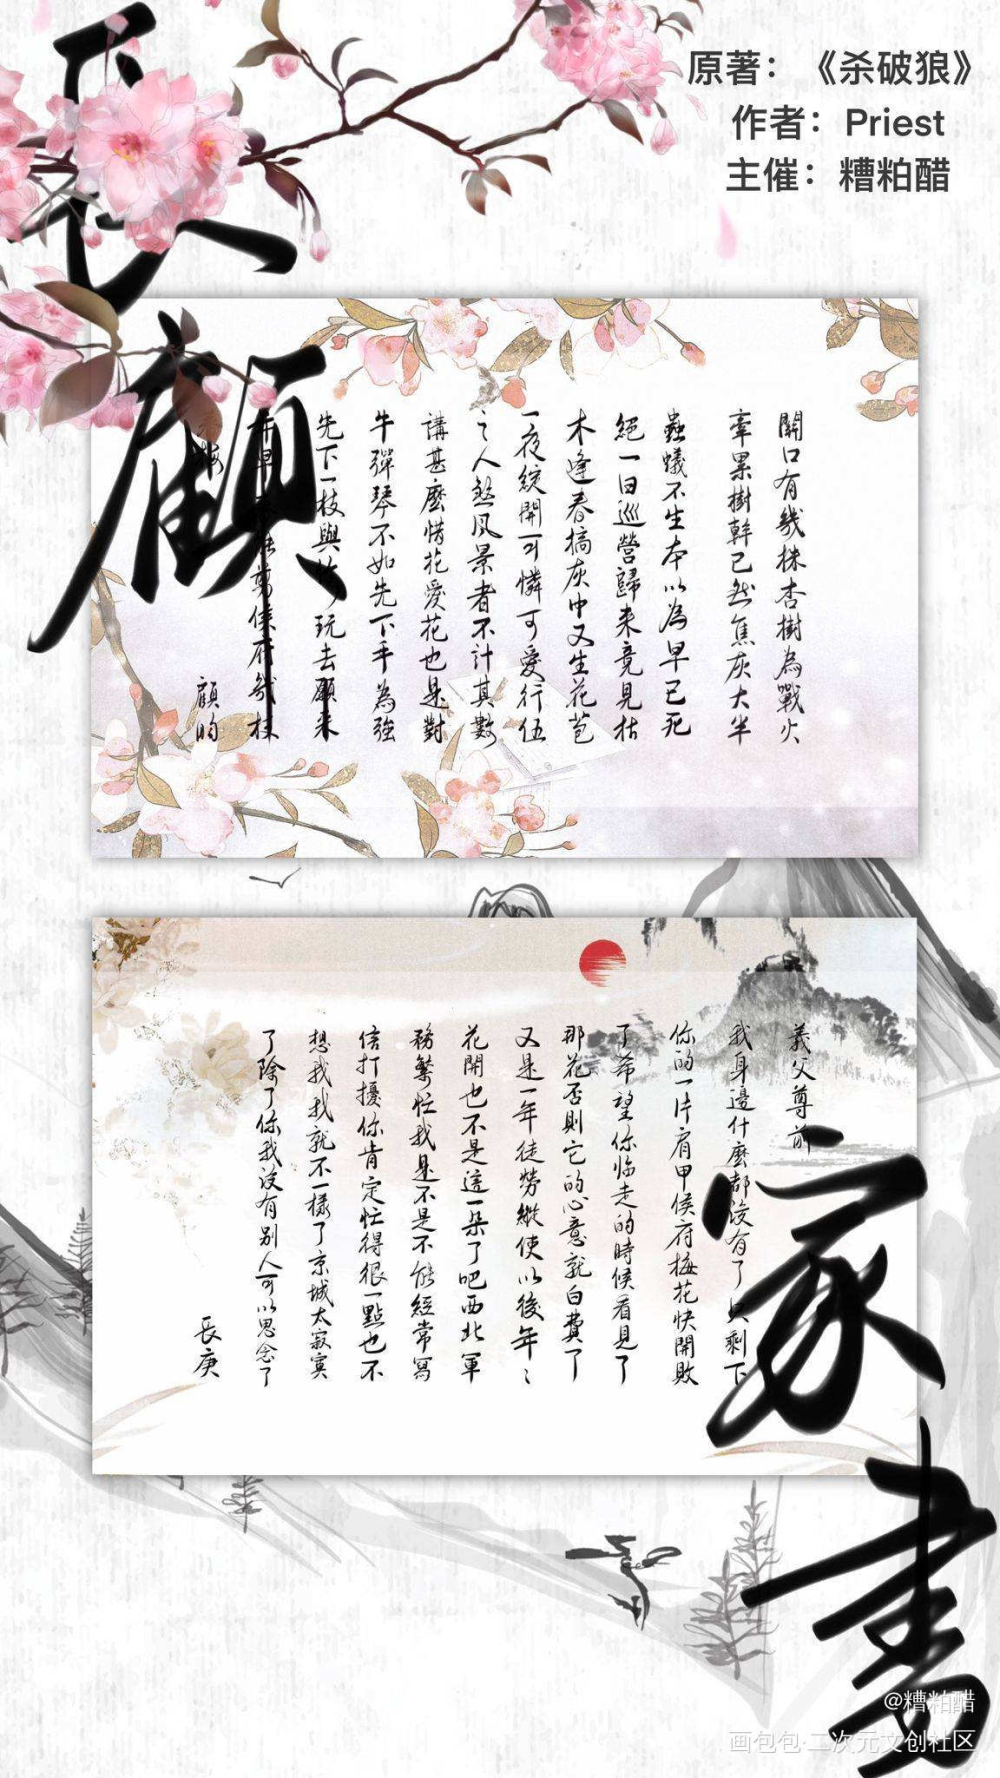 原著：《杀破狼》
作者：Priest
主催：糟粕醋
長
顧
關口有幾株杏樹為戰火
牽累樹幹已然焦灰大半
蟲蟻不生本以為早已死
絕一日巡營歸來竟見枯
木逢春搞灰中又生花苞
一夜綻開可憐可愛行伍
之人煞風景者不計其數
講甚麼惜花愛花也是對
牛彈琴不如先下手為強
先下一枝與 玩去願来
侯府幾枝
顧昀
義父尊前
我身邊什麼都沒有了只剩下
你的一片肩甲侯府梅花快開敗
了希望你臨走的時候看見了
那花否則它的心意就白費了
又是一年徒勞縱使以後年年
花開也不是這一朵了吧西北軍
務繁忙我是不是不能經常寫
信打擾你肯定忙得很一點也不
想我我就不一樣了京城太寂寞
了除了你我沒有別人可以思念了
長庚
家
書
@糟粕醋
画包包·二次元文创社区